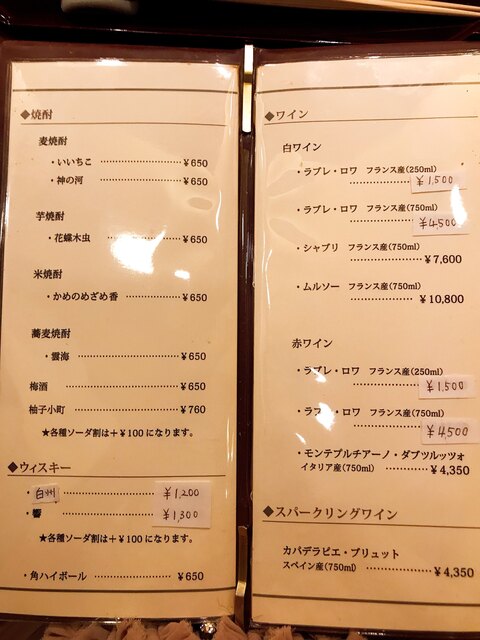 ◆焼酎
麦焼酎
・いいちこ ¥650
・神の河 ¥650
芋焼酎
・花蝶木虫 ¥650
米焼酎
・かめのめざめ香 ¥650
蕎麦焼酎
・雲海 ¥650
梅酒 ¥650
柚子小町 ¥760
★各種ソーダ割は+¥100になります。
◆ウィスキー
・白州 ¥1,200
・響 ¥1,300
★各種ソーダ割は+¥100になります。
・角ハイボール ¥650
◆ワイン
白ワイン
・ラブレ・ロワ フランス産(250ml)
¥1,500
・ラブレ・ロワ フランス産(750ml)
¥4,500
・シャブリ フランス産(750ml)
¥7,600
・ムルソー フランス産(750ml)
¥10,800
赤ワイン
・ラブレ・ロワ フランス産(250ml)
¥1,500
・ラブレ・ロワ フランス産(750ml)
¥4,500
・モンテプルチアーノ・ダブツルッツォ
イタリア産(750ml) ¥4,350
◆スパークリングワイン
カバデラピエ・ブリュット
スペイン産(750ml) ¥4,350